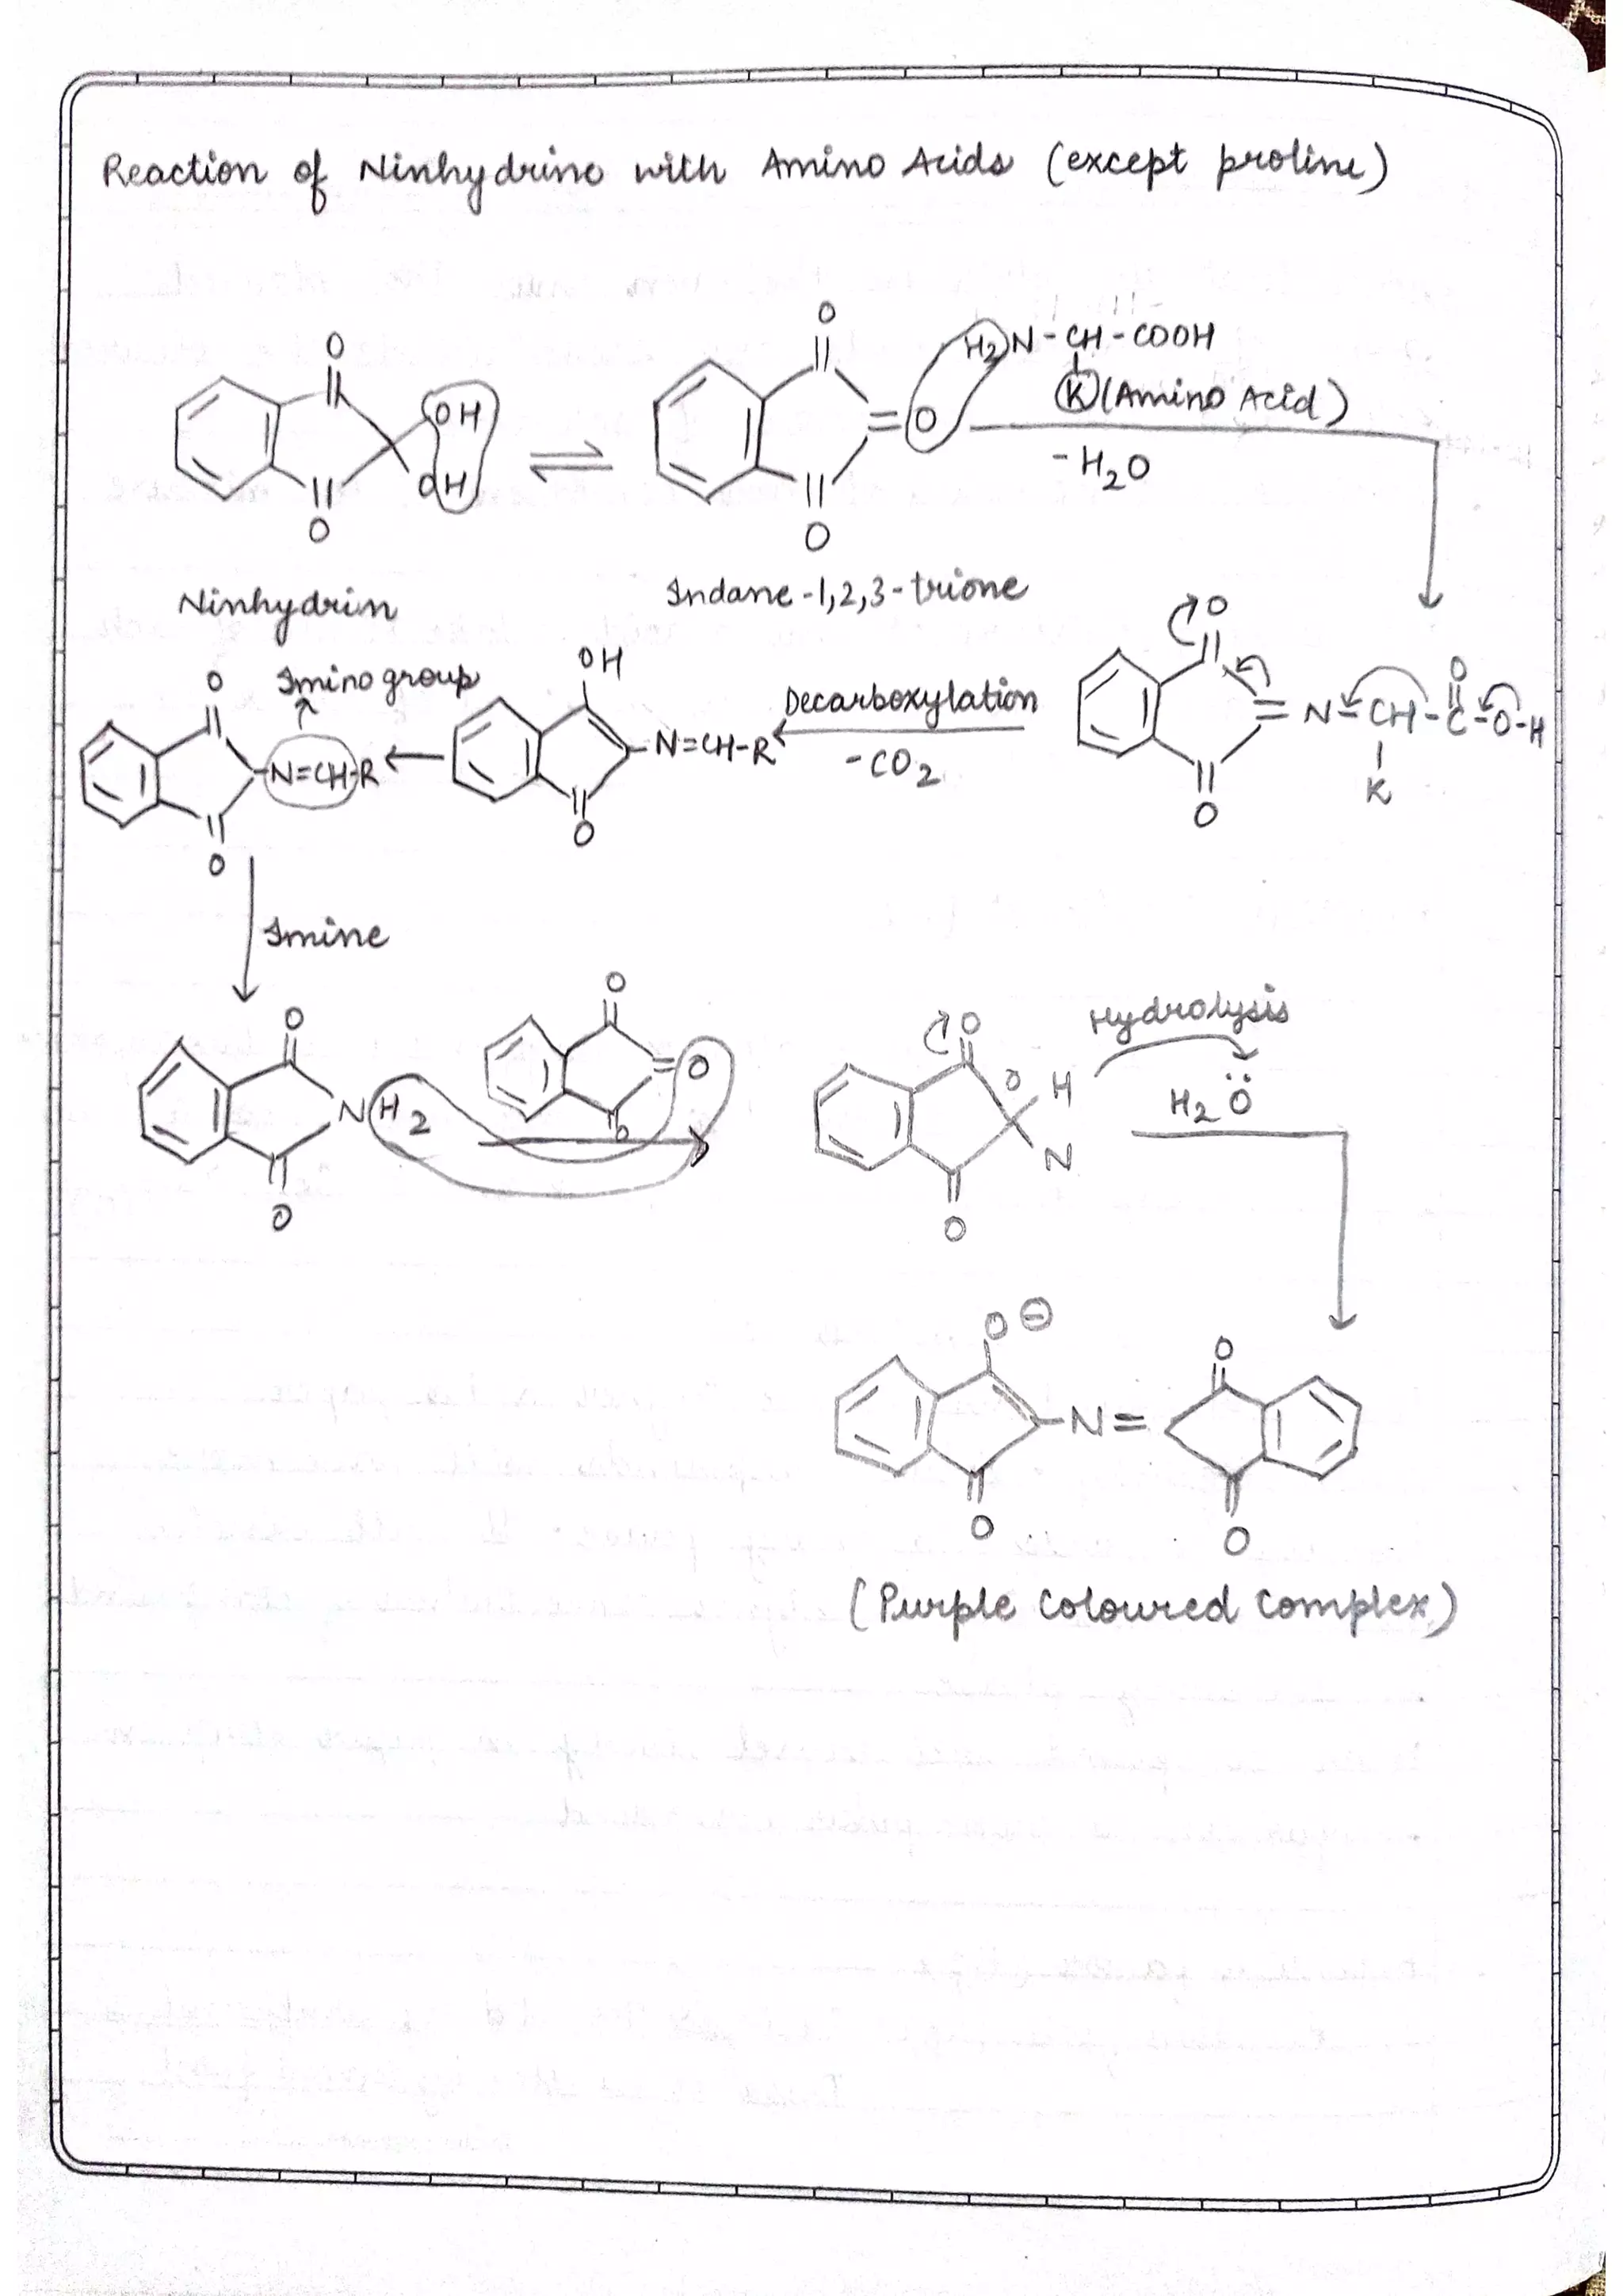 Reaction of Ninhydrin with Amino Acids (except proline)
O
OH
OH
O
Ninhydrin
O
O
O
Indane-1,2,3-trione
H2N-CH-COOH
R (Amino Acid)
-H2O
O
O
N-CH-C-O-H
O
R
Decarboxylation
-CO2
OH
N=CH-R
O
Imino group
O
N=CH-R
O
Imine
O
NH2
O
O
O
O
O
O H
N
O
Hydrolysis
H2Ö
O ⊖
N=
O
O
O
(Purple Coloured Complex)